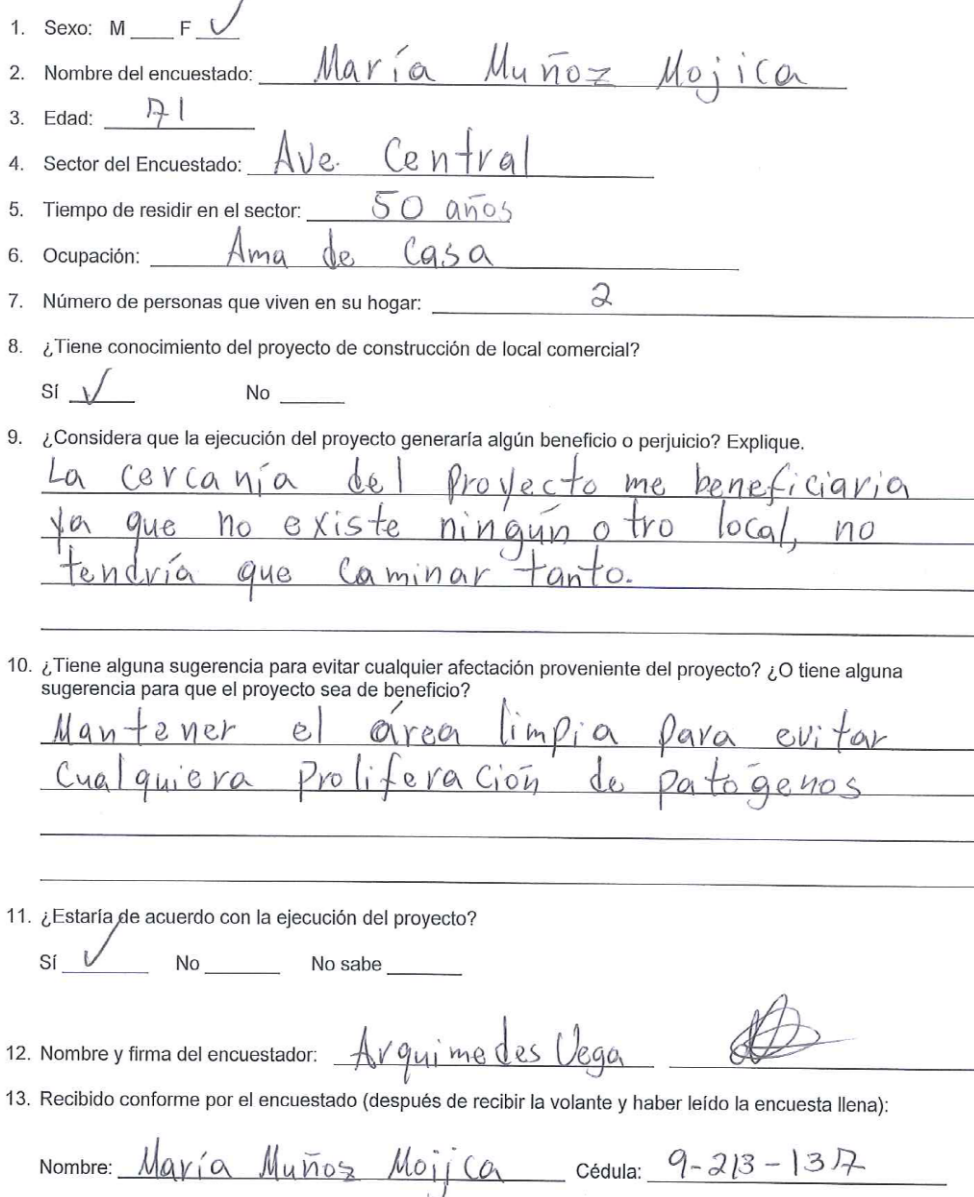 1. Sexo: M ____ F ✓
2. Nombre del encuestado: María Muñoz Mojica
3. Edad: 71
4. Sector del Encuestado: Ave. Central
5. Tiempo de residir en el sector: 50 años
6. Ocupación: Ama de Casa
7. Número de personas que viven en su hogar: 2
8. ¿Tiene conocimiento del proyecto de construcción de local comercial?
Sí ✓ No ____
9. ¿Considera que la ejecución del proyecto generaría algún beneficio o perjuicio? Explique.
La cercanía del Proyecto me beneficiaria
ya que no existe ningún otro local, no
tendría que caminar tanto.
10. ¿Tiene alguna sugerencia para evitar cualquier afectación proveniente del proyecto? ¿O tiene alguna
sugerencia para que el proyecto sea de beneficio?
Mantener el área limpia para evitar
Cualquiera Proliferación de patógenos
11. ¿Estaría de acuerdo con la ejecución del proyecto?
Sí ✓ No ____ No sabe ____
12. Nombre y firma del encuestador: Arquimedes Vega
13. Recibido conforme por el encuestado (después de recibir la volante y haber leído la encuesta llena):
Nombre: María Muñoz Mojica Cédula: 9-213-137